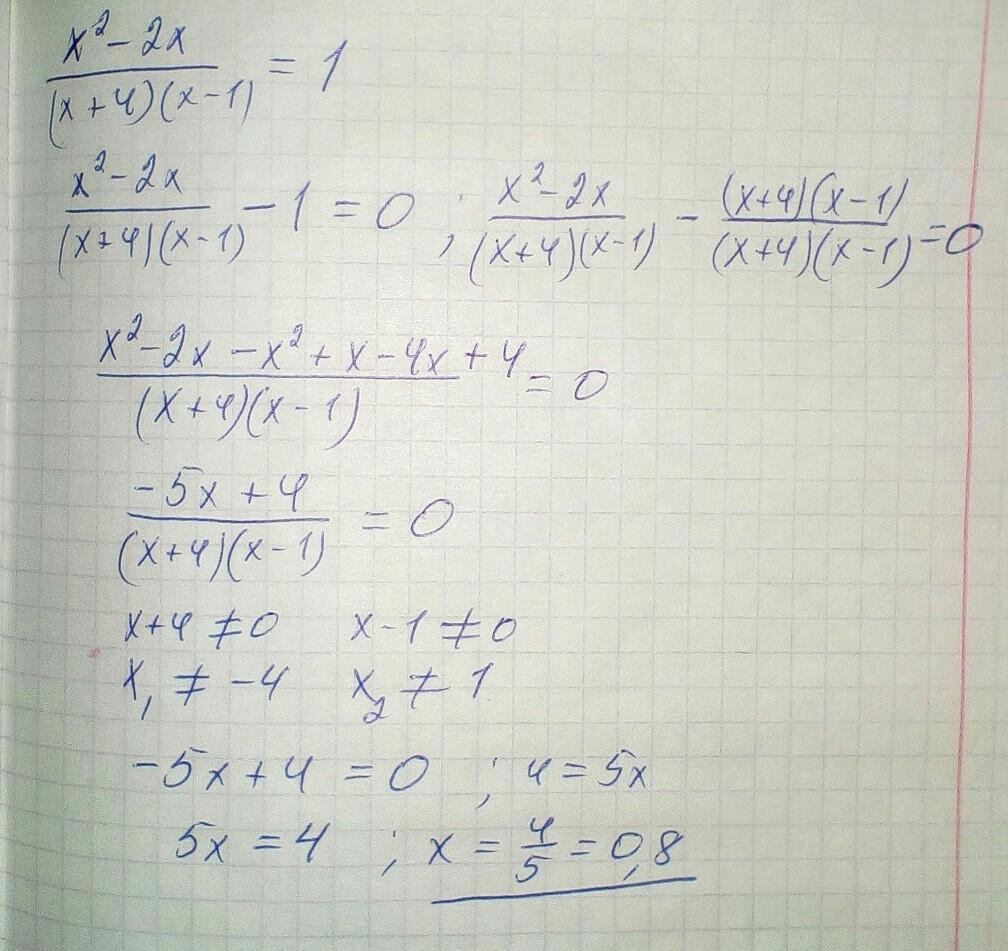 (x² - 2x)/((x+4)(x-1)) = 1
(x² - 2x)/((x+4)(x-1)) - 1 = 0 ; (x² - 2x)/((x+4)(x-1)) - ((x+4)(x-1))/((x+4)(x-1)) = 0
(x² - 2x - x² + x - 4x + 4)/((x+4)(x-1)) = 0
(-5x + 4)/((x+4)(x-1)) = 0
x+4 ≠ 0 x-1 ≠ 0
x₁ ≠ -4 x₂ ≠ 1
-5x + 4 = 0 ; 4 = 5x
5x = 4 ; x = 4/5 = 0,8